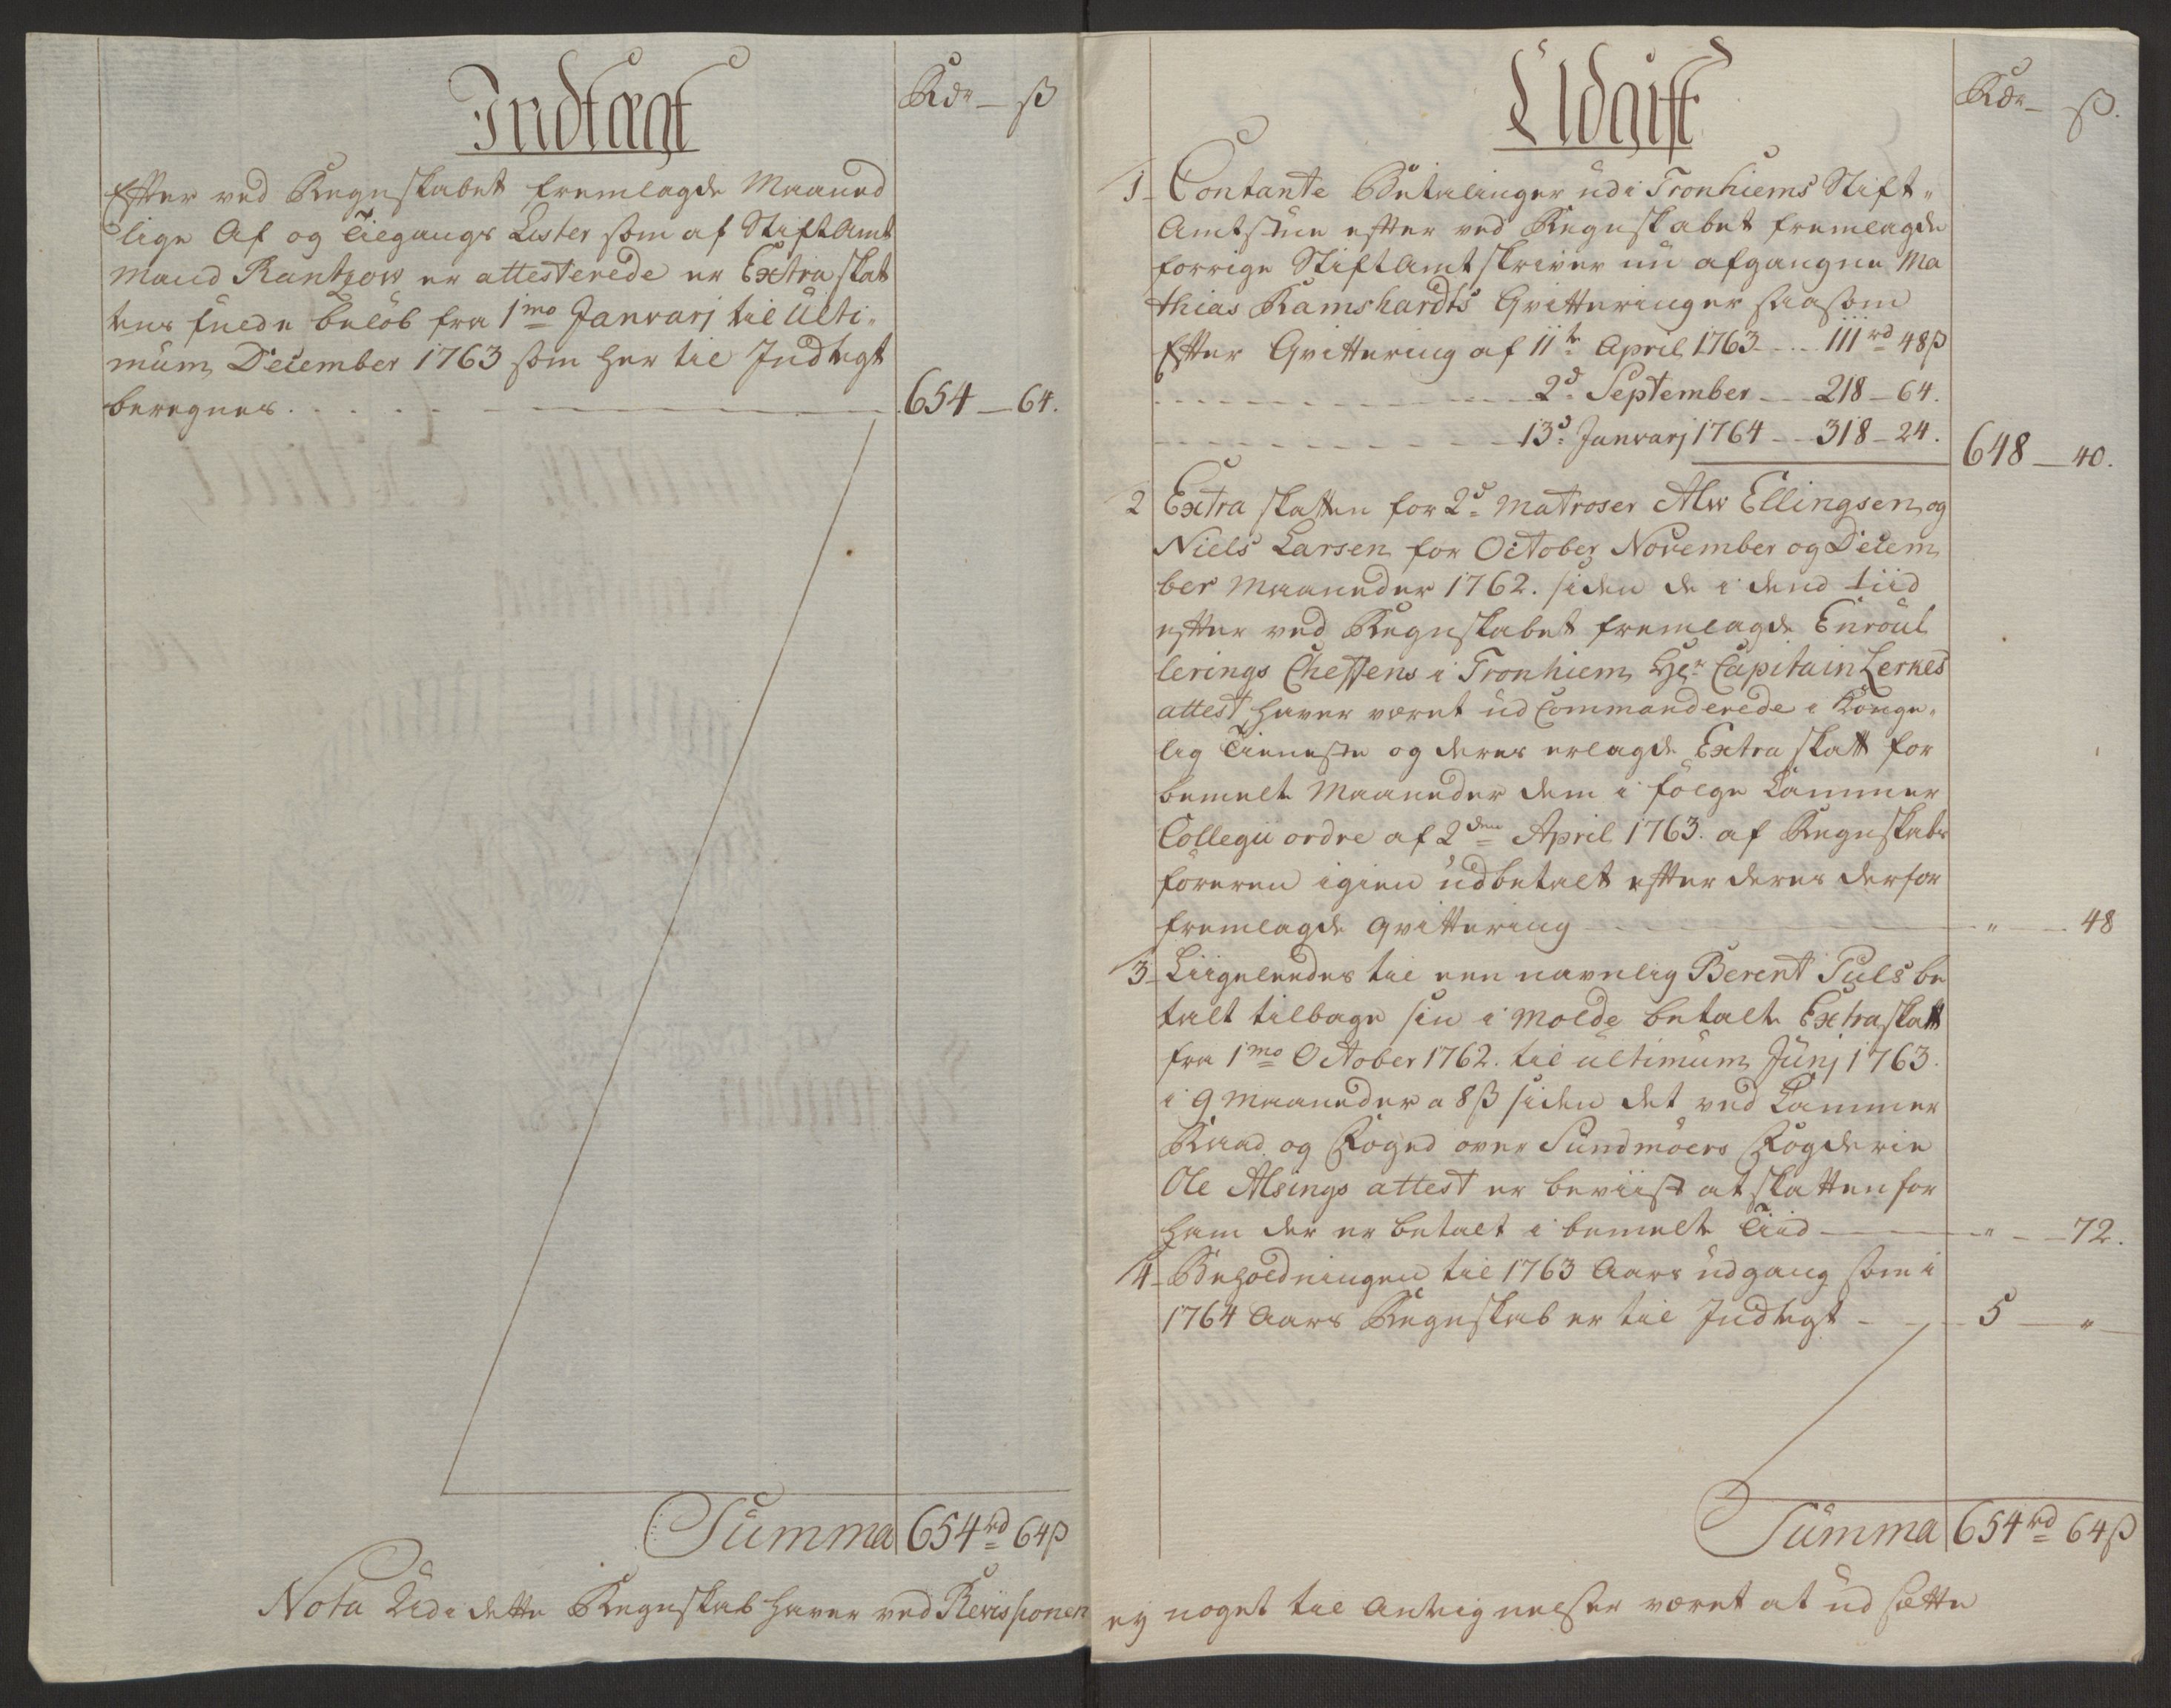 Indtægt
Rdr — ß
Efter ved Regnskabet fremlagde Maaned
lige Af og Tilgangs Lister som af StiftAmt
mand Rantzow er attesterede er Extra skat
tens fulde beløb fra 1mo Janvarj til Ulti-
mum December 1763 som her til Indtegt
beregnes . . . . 654 — 64.
Summa 654rd 64ß
Nota Udi dette Regnskab haver ved Revissionen
Udgift
Rdr — ß.
1 - Contante Betalinger udi Tronhiems Stift-
Amtstue efter ved Regnskabet fremlagde
forrige StiftAmtskriver nu afgangne Ma
thias Ramshardts Qvitteringer saasom
Efter Qvittering af 11te April 1763 — 111rd 48ß
2d September — 218 — 64.
13d Janvarj 1764 — 318 — 24. 648 — 40.
2 Extra skatten for 2d Matroser Alw Ellingsen og
Niels Larsen for October November og Decem
ber Maaneder 1762. siden de i dend tiid
efter ved Regnskabet fremlagde Enroul
lerings Cheffens i Tronhiem Hr Capitain Lerkes
attest haver været ud Commanderede i Konge-
lig Tieneste og deres erlagde Extra skatt for
bemelte Maaneder dem i følge Cammer
Collegii ordre af 2den April 1763. af Regnskabs
føreren igien udbetalt efter deres derfor
fremlagde qvittering — " — 48
3 - Liigeledes til een navnlig Berent Puls be
talt tilbage sin i Molde betalte Extraskatt
fra 1mo October 1762. til ultimum Junj 1763.
i 9 Maaneder a 8ß siden det ved Cammer
Raad og Foged over Sundmöers Fogderie
Ole Alsings attest er beviist at skatten for
ham der er betalt i bemelte Tiid — " — 72.
4 - Beholdningen til 1763 Aars udgang som i
1764 Aars Regnskab er til Indtegt — 5 — "
Summa 654rd 64ß
ej noget til Antegnelser været at udsætte